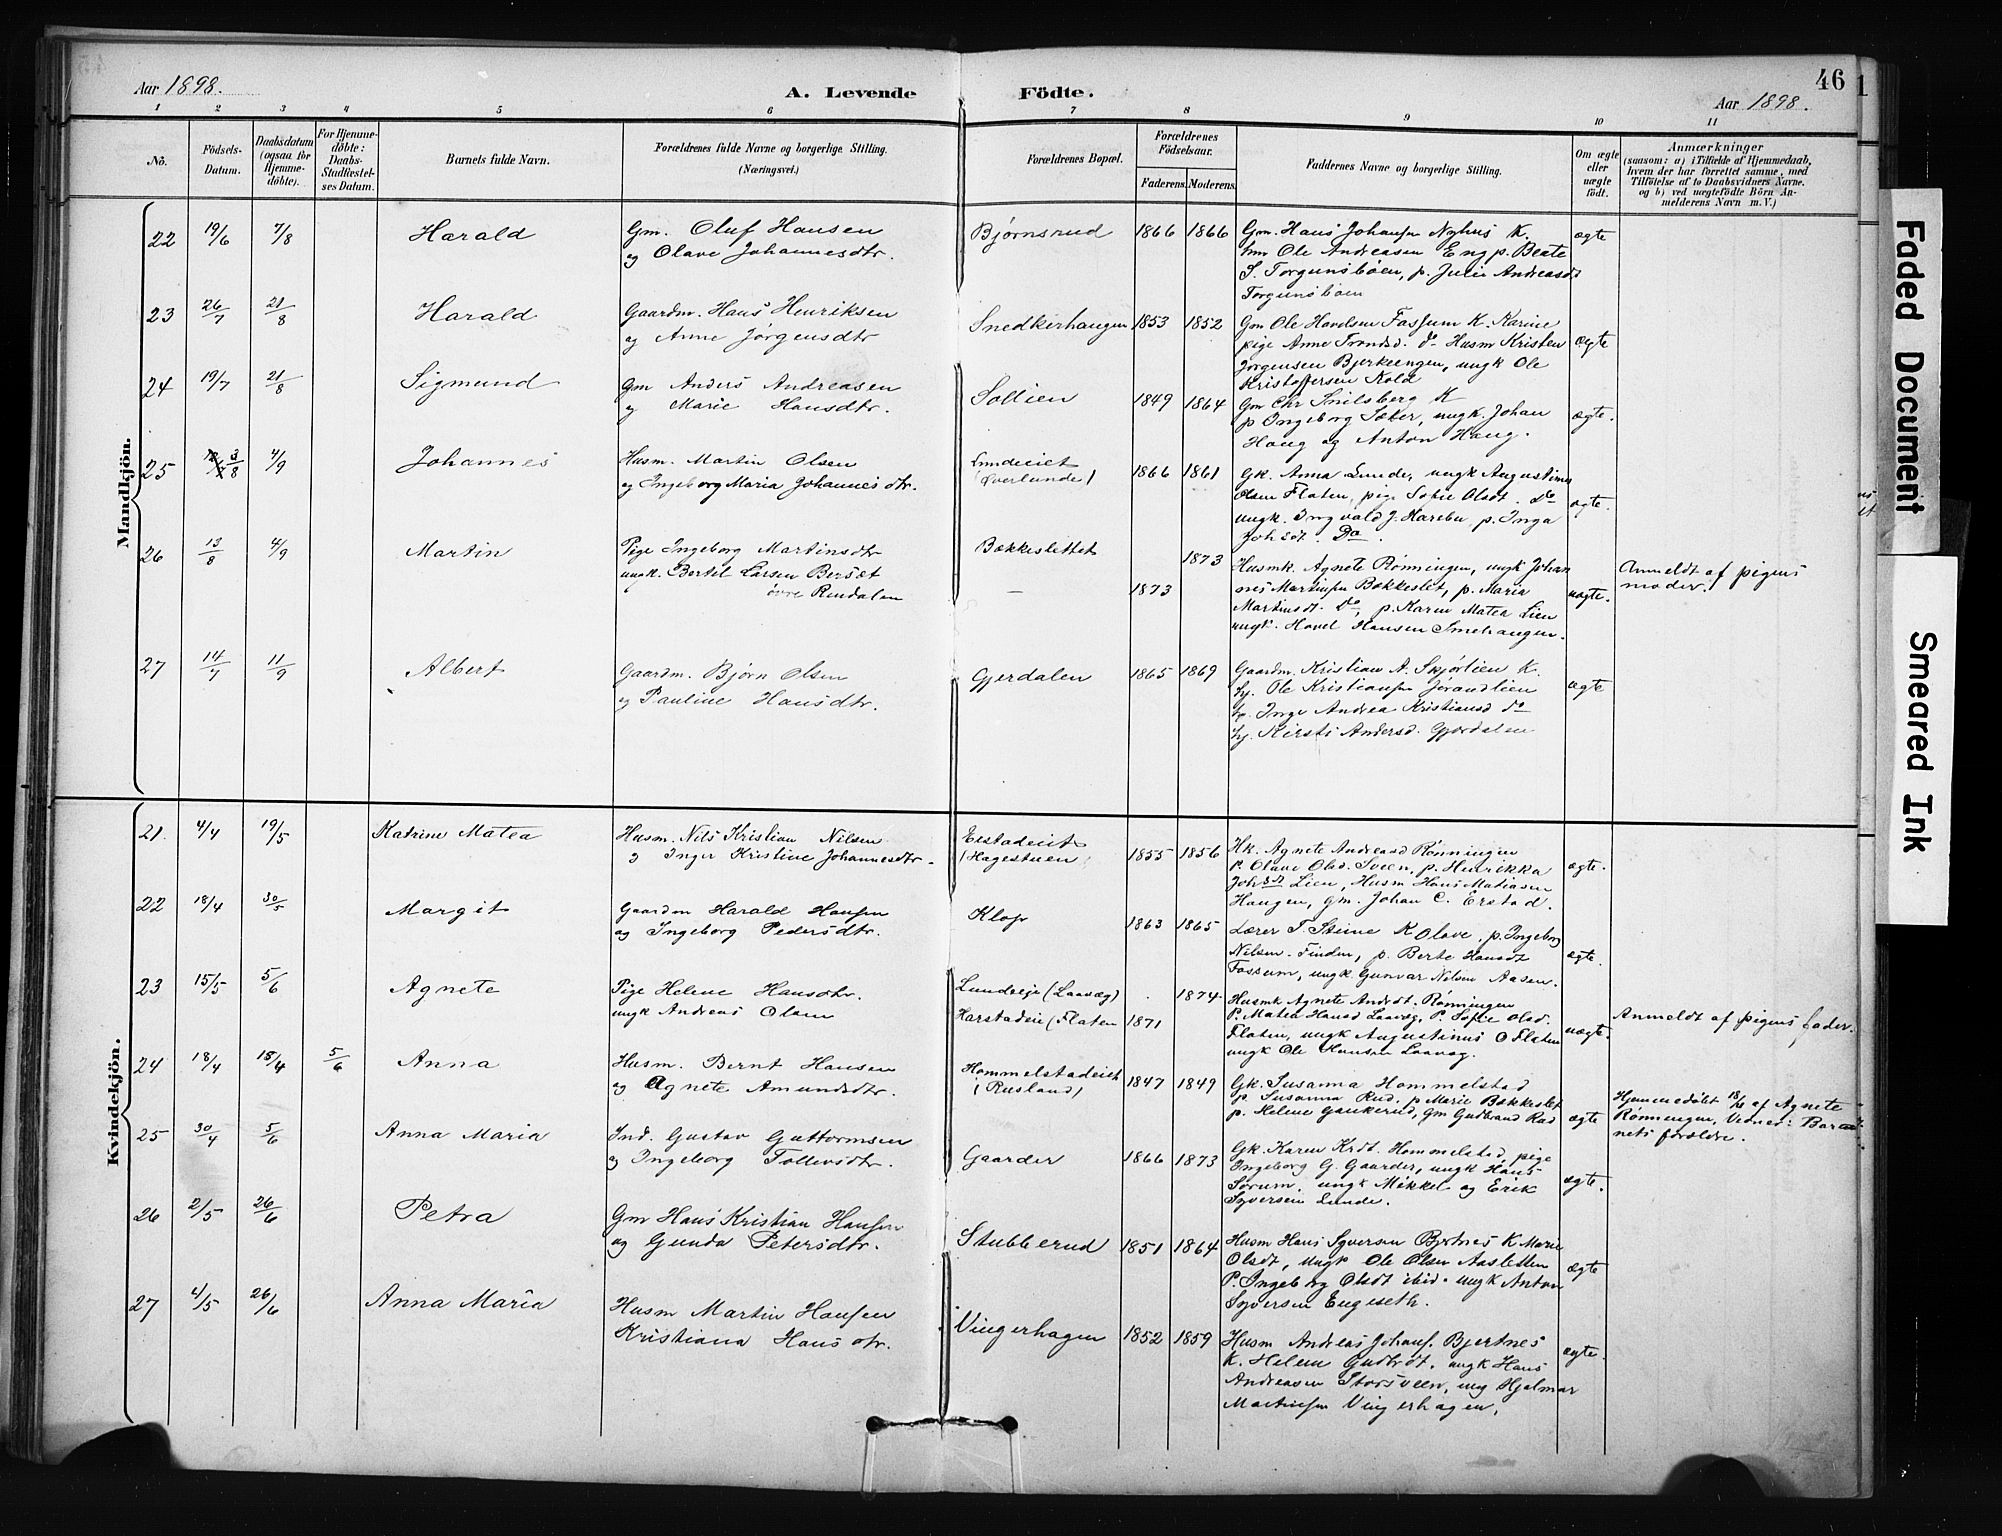 Aar 1898. A. Levende Födte. Aar 1898. 46
1 2 3 4 5 6 7 8 9 10 11
No. Födsels-Datum. Daabsdatum (ogsaa for Hjemme-döbte). For Hjemme-döbte: Daabs-Stadfæstel-ses Datum. Barnets fulde Navn. Forældrenes fulde Navne og borgerlige Stilling. (Næringsvei.) Forældrenes Bopæl. Forældrenes Födselsaar. Faderens. Moderens. Faddernes Navne og borgerlige Stilling. Om ægte eller uægte födt. Anmærkninger (saasom: a) i Tilfælde af Hjemmedaab, hvem der har forrettet samme, med Tilföielse af to Daabsvidners Navne. og b) ved uægtefödte Börn An-melderens Navn m. V.)
Mandkjön.
22 19/6 7/8 Harald Gm. Oluf Hansen Bjørnsrud 1866 1866 Gm. Hans Johansen Nyhus K. ægte
og Olave Johannesdtr. Ole Andreasen Eng p. Beate
S. Torgunsböen, p. Julie Andreasdt
Torgunsböen
23 26/7 21/8 Harald Gaardm. Hans Henriksen Snedkerhaugen 1853 1852 Gm Ole Hovelsen Fossum K. Karine
og Anne Jørgensdtr pige Anne Trondsd. do Husm Kristen ægte
Jørgensen Bjerkeengen, ungk Ole
Kristoffersen Kold
24 19/7 21/8 Sigmund Gm Anders Andreasen Sollien 1849 1864 Gm Chr Snilsberg K
og Marie Hansdtr. p Ingeborg Sæter, ungk. Johan ægte.
Haug og Anton Haug.
25 3/8 4/9 Johannes Husm. Martin Olsen Lundeeiet 1866 1861 Gk. Anna Lunde, ungk Augustinus
og Ingeborg Maria Johannesdtr. (Øverlunde) Olsen Flaten, pige Sofie Olsdt. do ægte.
ungk. Ingvald J. Harebu, p. Inga
Johsdt. Do.
26 13/8 4/9 Martin Pige Ingeborg Martinsdtr Bækkeslettet 1873 Husmk. Agnete Rønningen, ungk Johan Anmeldt af pigens
ungk. Bertel Larsen Berset 1873 nes Martinsen Bækkeslet, p. Maria uægte. moder.
øvre Rendalen Martinsdt. do, p. Karen Matea Lien
ungk. Hovel Hansen Smehaugen.
27 14/7 11/9 Albert Gaardm. Bjørn Olsen Gjerdalen 1865 1869 Gaardm. Kristian A. Skjørlien K.
og Pauline Hansdtr. Ole Kristiansen Jørandlien ægte
Inge Andrea Kristiansd do
Kirsti Andersd. Gjerdalen
Kvindekjön.
21. 4/4 19/5 Katrine Matea Husm. Nils Kristian Nilsen Erstadeiet 1855 1856 Hk. Agnete Andreasd Rønningen ægte.
og Inger Kristine Johannesdtr. (Hagestuen) P. Olave Olsd. Sveen, p. Henrikka
Johsdt Lien, Husm Hans Matiasen
Haugen, gm. Johan C. Erstad.
22 18/4 30/5 Margit Gaardm Harald Hansen Klop 1863 1865 Lærer T. Steine K Olave, p. Ingeborg
og Ingeborg Pedersdtr. Nilsen Finden, p. Berte Hansdt ægte.
Fossum, ungk. Gunvar Nilsen Aasen.
23 15/5 5/6 Agnete Pige Helene Hansdtr. Lundeeje (Laavæg) 1874 Husmk Agnete Andrdt. Rønningen
ungk Andreas Olsen Harstadeie (Flaten 1871 P. Matea Hansd Laavæg, P. Sofie Olsd. uægte. Anmeldt af pigens fader.
Flaten, ungk Augustinus O Flaten
ungk Ole Hansen Laavæg.
24 18/4 18/4 5/6 Anna Husm. Bernt Hansen Hommelstadeiet 1847 1849 Gk. Susanna Hommelstad
og Agnete Amundsdtr. (Rusland) p Susanna Rud. p Marie Bækkeslet ægte Hjemmedøbt 18/4 af Agnete
p. Helene Gaukerud, Gm Gudbrand Ras Rønningen, Vidner: Bar
nets forældre.
25 30/4 5/6 Anna Maria Ind. Gustav Guttormsen Gaarder 1866 1873 Gk. Karen Krdt. Hommelstad, pige
og Ingeborg Tollevsdtr. Ingeborg G. Gaarder, ungk Hans ægte.
Sørum, ungk Mikkel og Erik
Syversen Lunde.
26 2/5 26/6 Petra Gm Hans Kristian Hansen Stubberud 1851 1864 Husm Hans Syversen Bjertnes K Marie
og Gunda Petersdtr. Olsdt, ungk Ole Olsen Aasletten ægte
P. Ingeborg Olsdt ibid. ungk Anton
Syversen Engeseth.
27 4/5 26/6 Anna Maria Husm Martin Hansen Vingerhagen 1852 1859 Husm Andreas Johans. Bjertnes ægte.
Kristiana Hansdtr. K. Helene Gudbrdt. ungk Hans
Andreasen Storsveen, ung Hjalmar
Martinsen Vingerhagen.
Faded Document
Smeared Ink